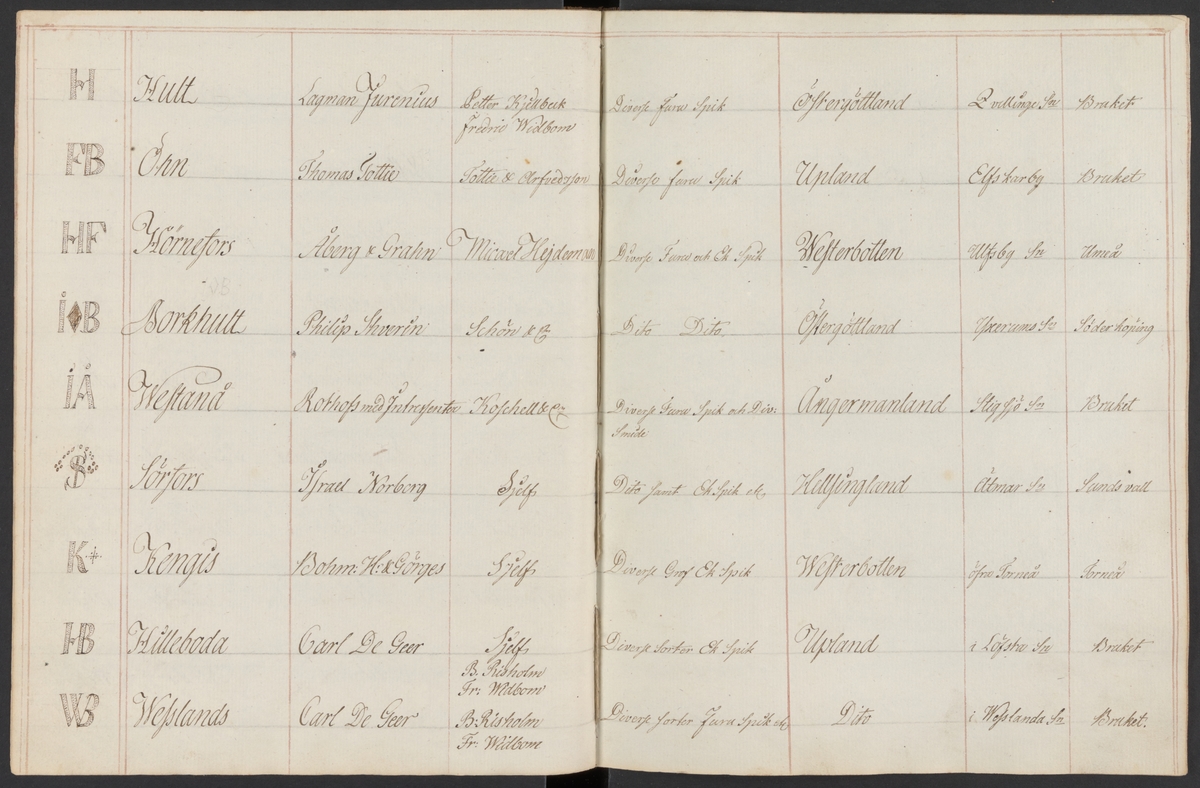 H Hult Lagman Jurenius Petter Kjellbeck Diverse Furu Spik Östergöttland Qvillinge Sn Bruket
Fredric Widbom
FB Öhn Thomas Tottie Tottie & Arfvedsson Diverse furu Spik Upland Elfskarby Bruket
HF Hörnefors Åberg & Grahn Micael Hejdeman Diverse Furu och Ek Spik Westerbotten Umeå
I♦B Borkhult Philip Shverin Schön & C Dito Dito Östergöttland Yxerums Sn Söderköping
IÅ Westanå Rothofs med Intressenter Koschell & C Diverse Furu Spik och Div: Ångermanland Stigsjö Sn Bruket
Smide
S Sörfors Israel Norberg Sjelf Dito samt Ek Spik etc Hellsingland Atmar Sn Sundsvall
K Kengis Bohm: H: & Görges Sjelf Diverse Grof Ek Spik Westerbotten öfre Torneå Torneå
HB Hilleboda Carl De Geer Sjelf Diverse Sorter Ek Spik Upland i Löfsta Sn Bruket
B. Risholm
Fr: Widbom
WB Wesslands Carl De Geer B: Risholm Diverse sorter Furu Spik etc Dito i Wesslanda Sn Bruket.
Fr: Widbom